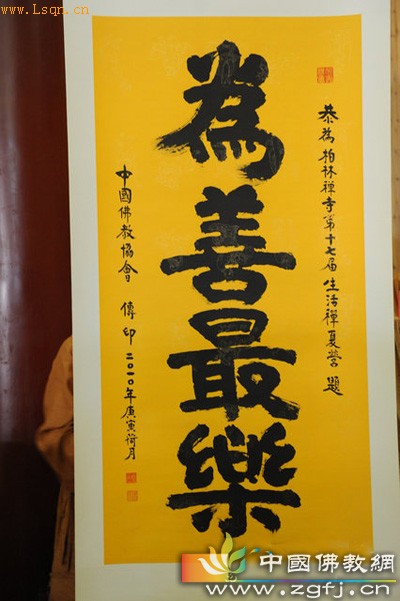 www.Lsqn.cn
恭為柏林禅寺第十七届生活禪夏營題
為善最樂
中國佛教協會 傳印 二〇一〇年庚寅荷月
中國佛教網
www.zgfj.cn